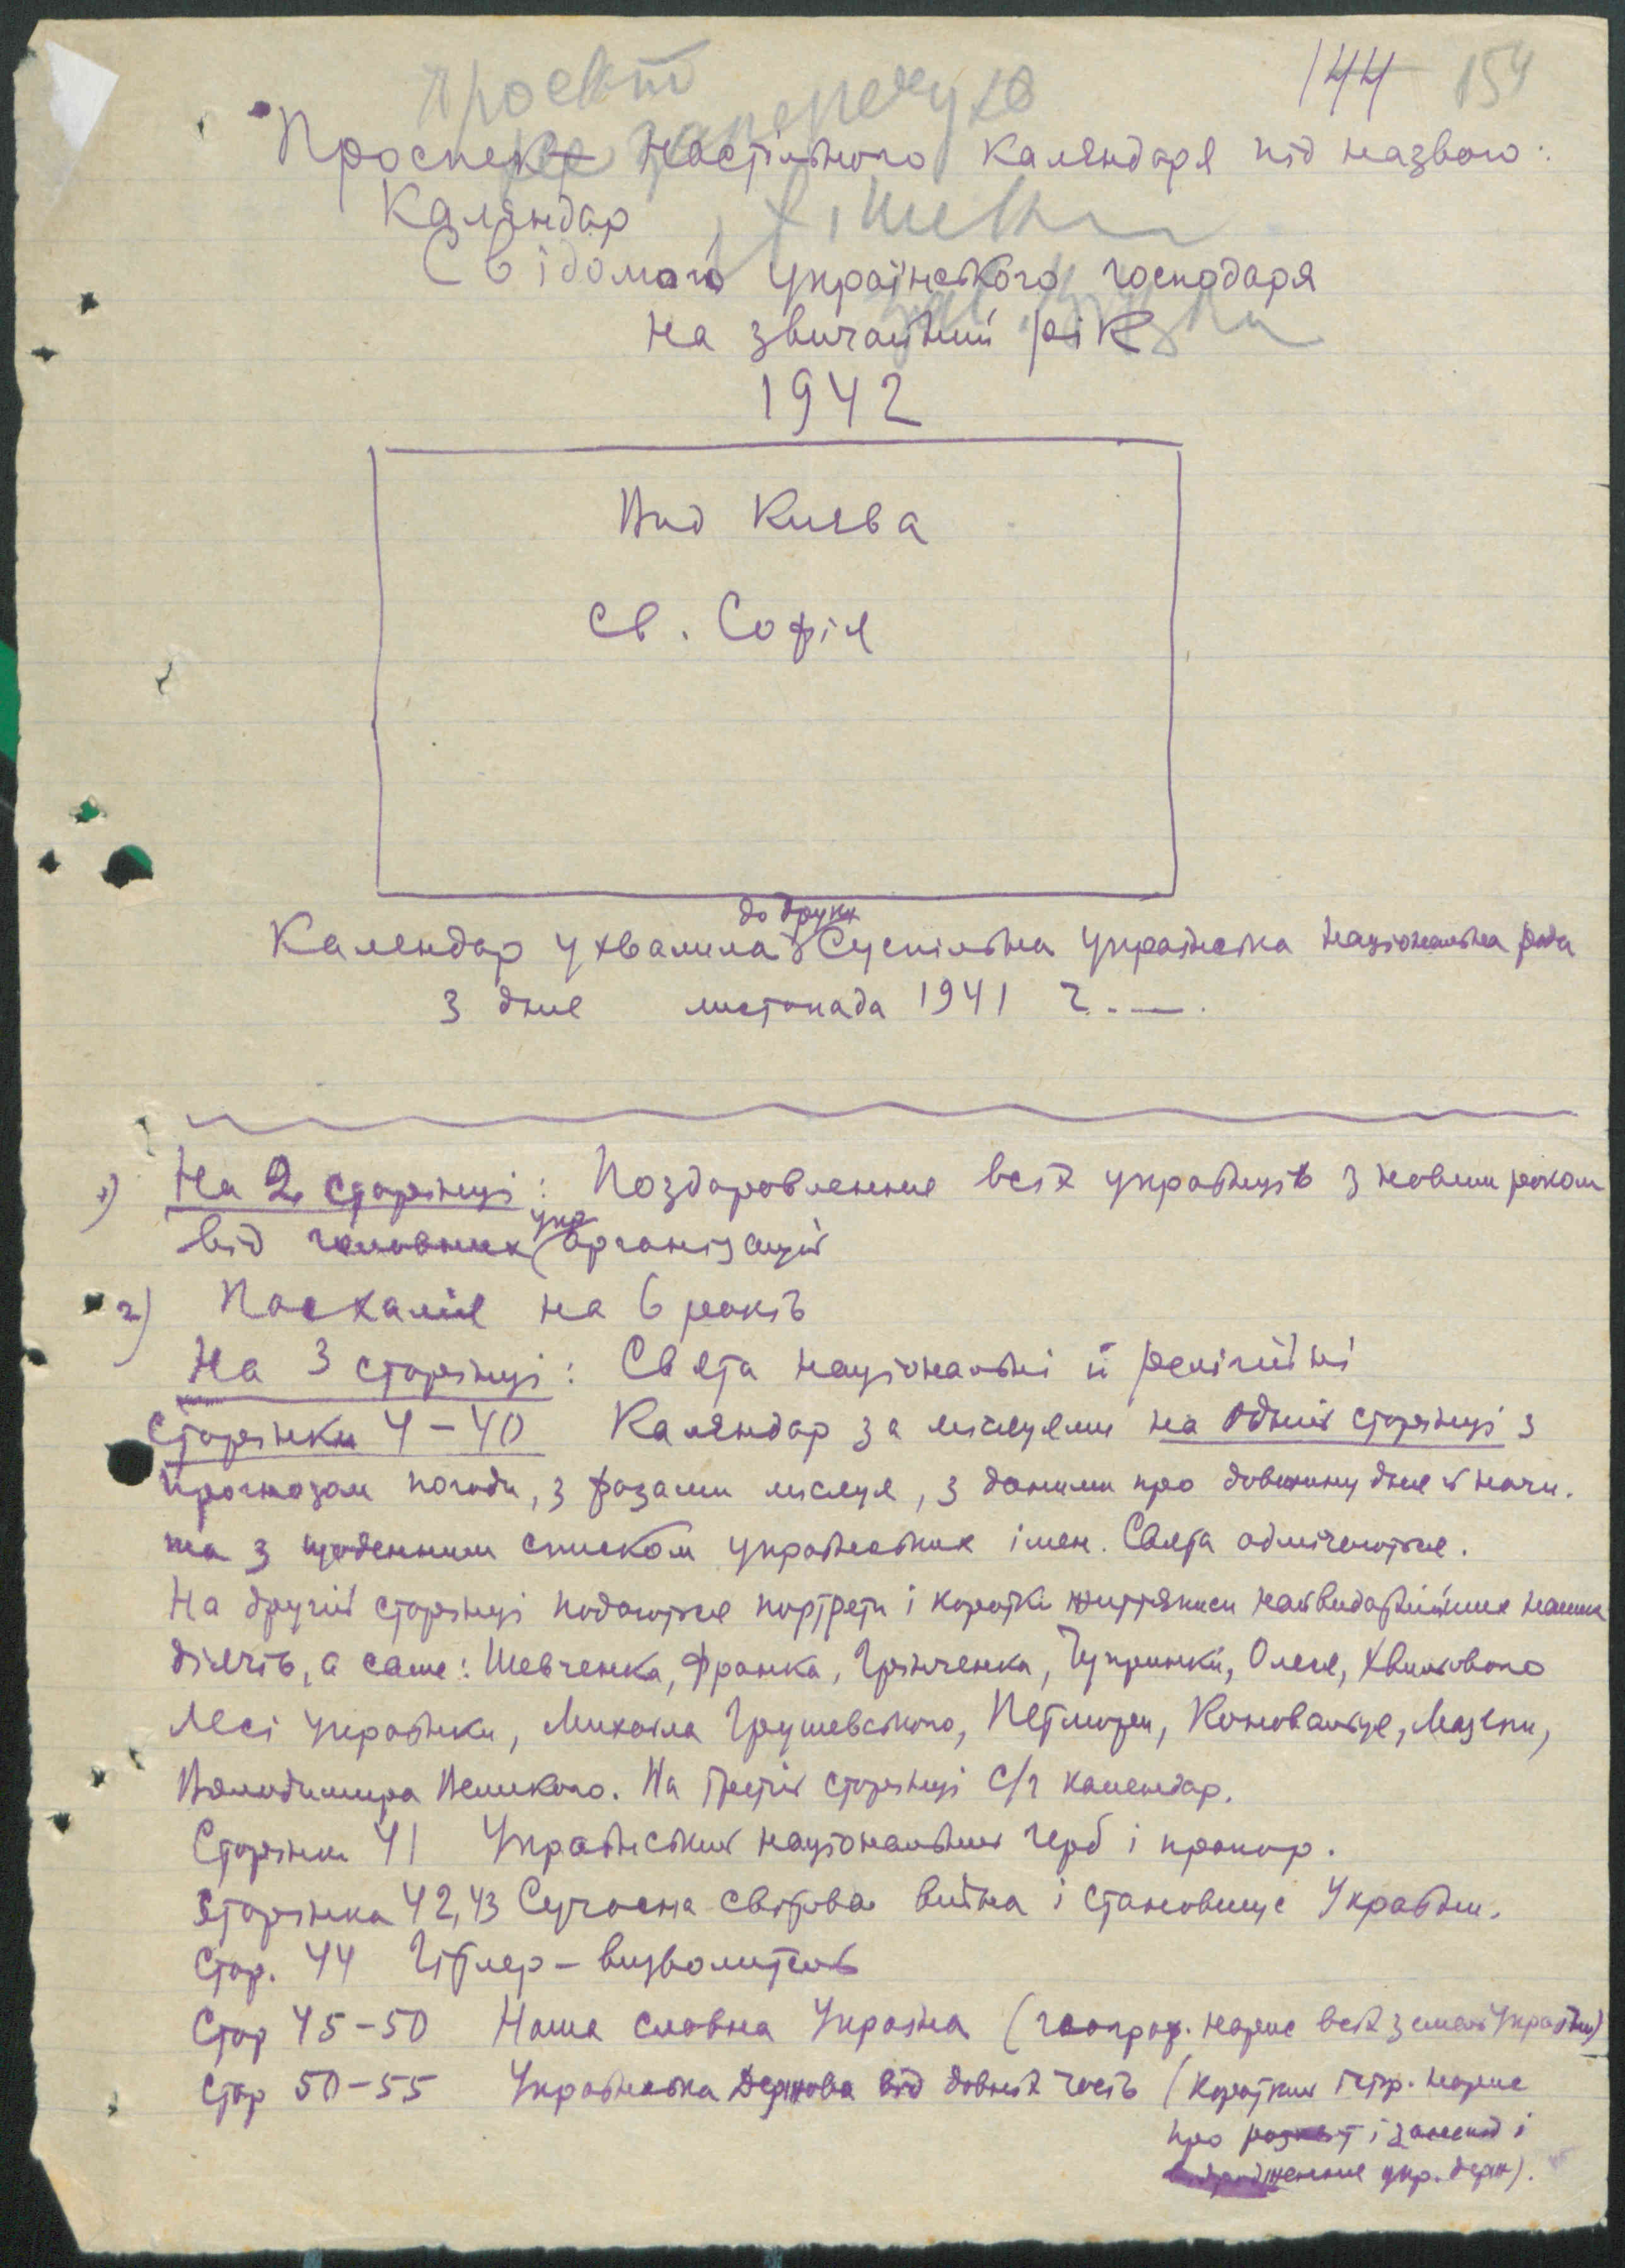 144 154
проєкт
Проспект настільного календаря під назвою:
Календар
Свідомого Українського господаря
на звичайний рік
1942
Вид Києва
Св. Софія
до друку
Календар ухвалила Суспільна Українська Національна рада
з дня листопада 1941 г. —.
1) На 2 сторінці: Поздоровлення всіх українців з новим роком
укр
від головних організацій
2) Пасхалія на 6 років
На 3 сторінці: Свята національні й релігійні
Сторінки 4–40 Каляндар за місяцями на одній сторінці з
прогнозом погоди, з фазами місяця, з даними про довжину дня й ночи.
та з щоденним списком українських імен. Свята одмічаються.
На другій сторінці подаються портрети і короткі життяписи найвидатнійших наших
діячів, а саме: Шевченка, Франка, Грінченка, Чупринки, Олеся, Хвильового
Лесі Українки, Михаїла Грушевського, Петлюри, Коновальця, Мазепи,
Володимира Великого. На третій сторінці с/г календар.
Сторінка 41 Український національний герб і прапор.
Сторінка 42,43 Сучасна світова війна і становище Украйни.
Стор. 44 Гітлер – визволитель
Стор 45–50 Наша славна Україна (географ. нарис всіх земель України)
Стор 50–55 Українська Держава від давніх часів (короткий істор. нарис
про розквіт і занепад і
відродження укр. держ).